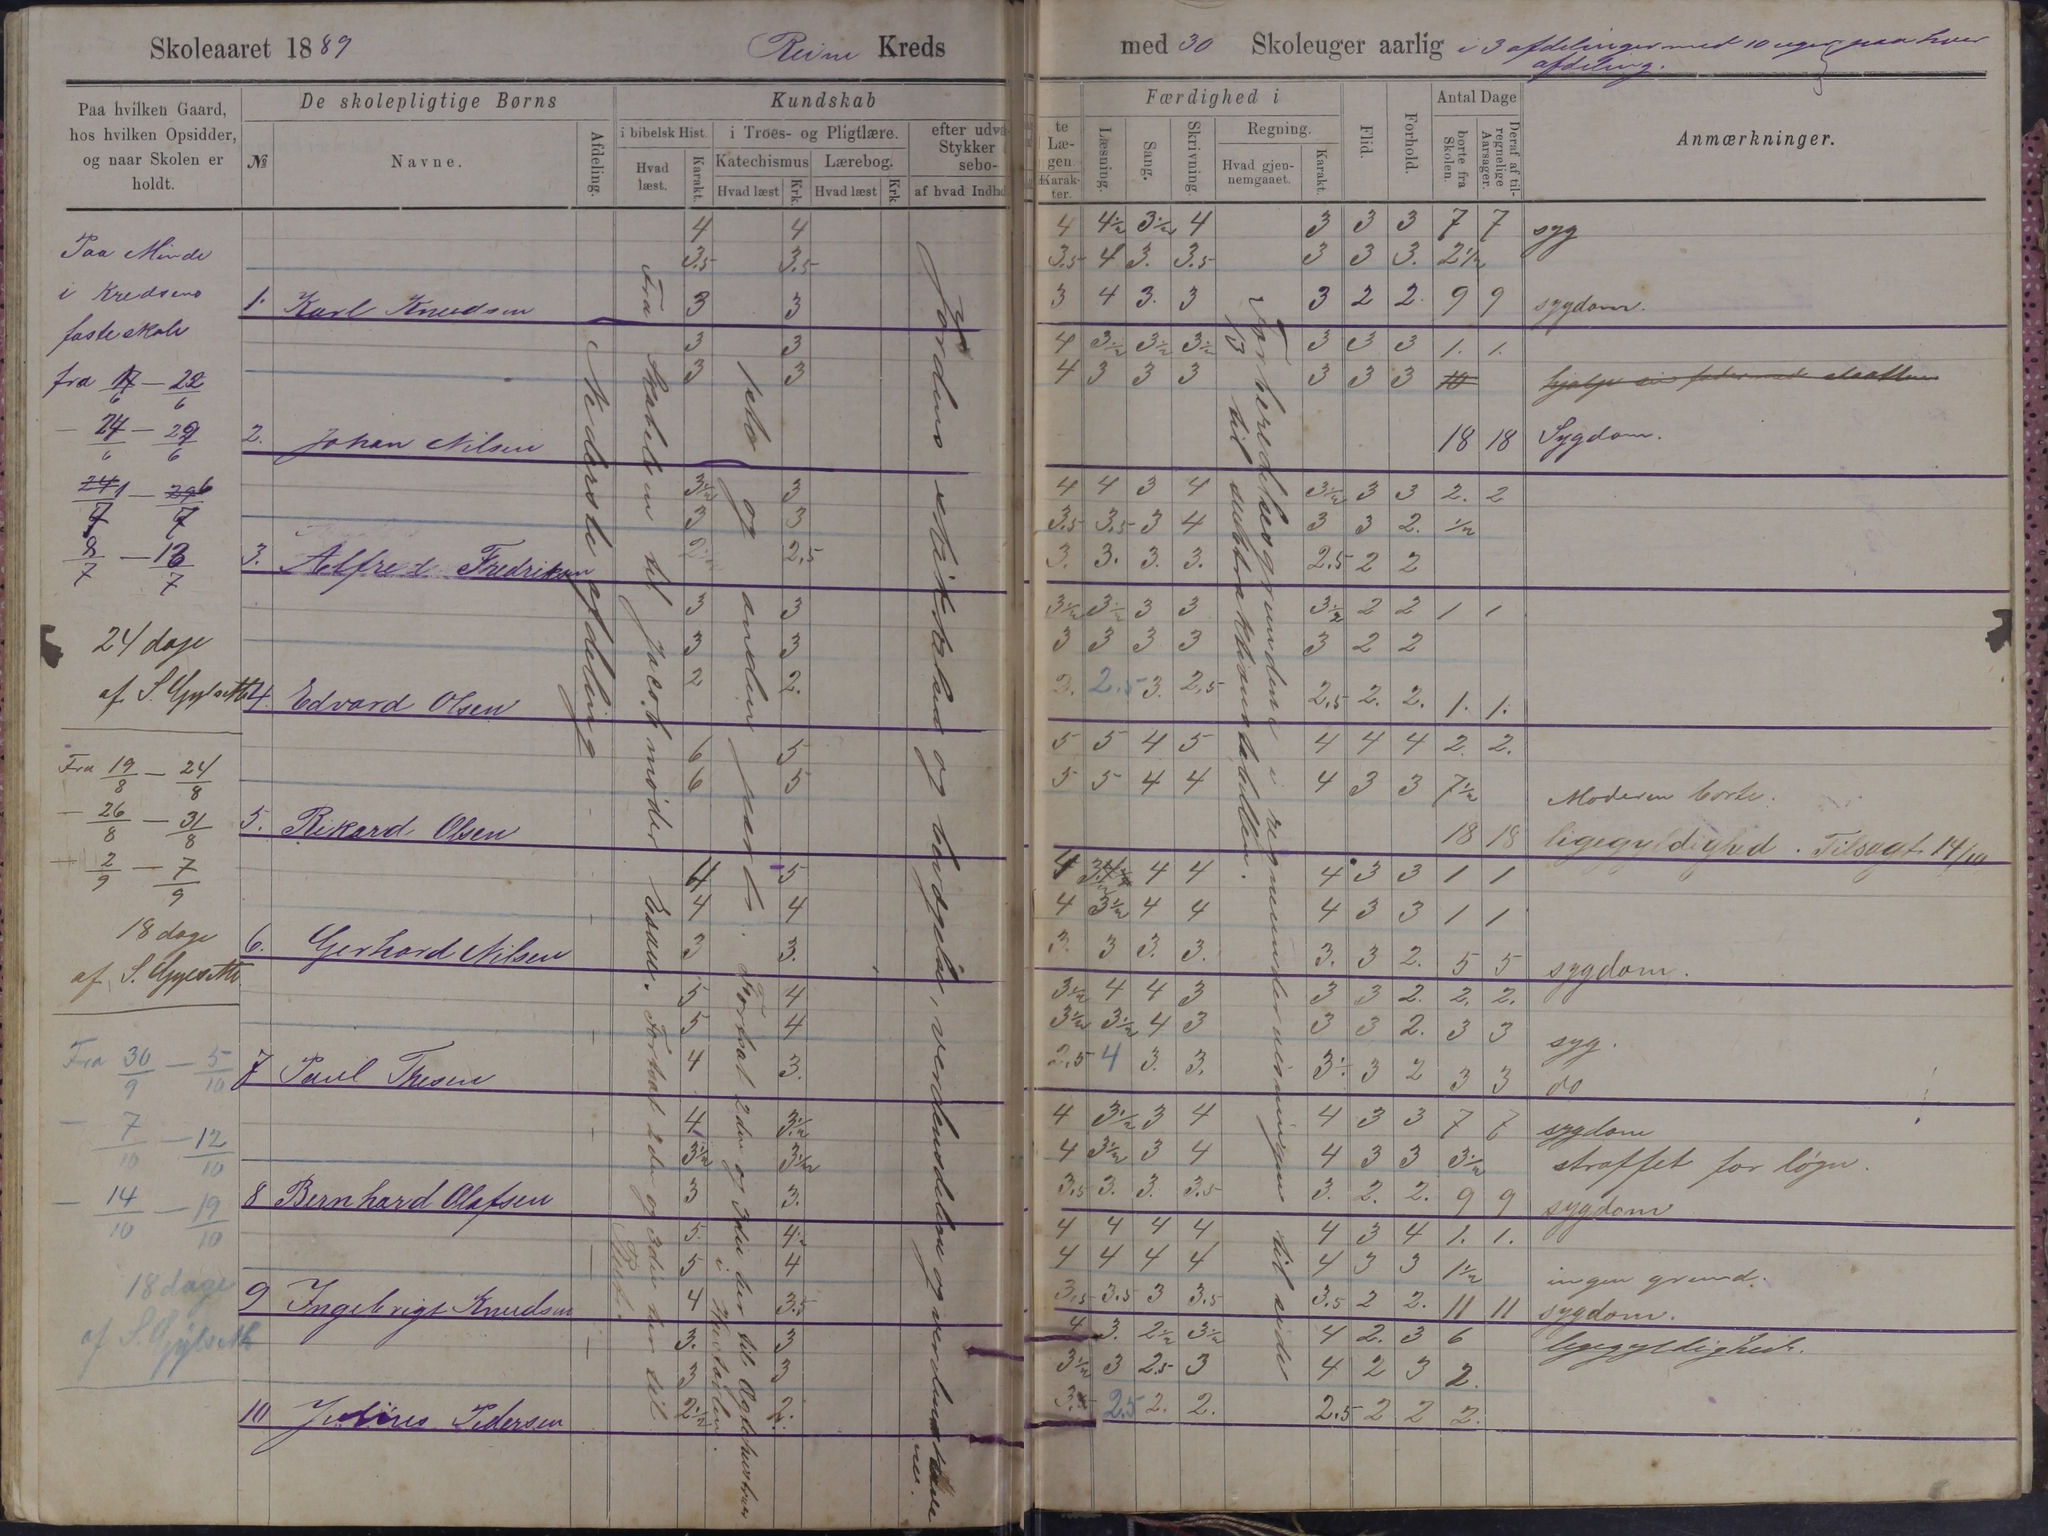 Skoleaaret 1889
Reine Kreds
med 30 Skoleuger aarlig i 3 afdelinger med 10 uger paa hver
afdeling.
Paa hvilken Gaard,
hos hvilken Opsidder,
og naar Skolen er
holdt.
De skolepligtige Børns
№
Navne.
Afdeling.
Kundskab
i bibelsk Hist.
Hvad
læst.
Karakt.
i Troes- og Pligtlære.
Katechismus
Lærebog.
Hvad læst
Krk.
Hvad læst
Krk.
efter udva
Stykker
sebo-
af hvad Indh
te
Læ-
gen.
Karak-
ter.
Færdighed i
Læsning.
Sang.
Skrivning.
Regning.
Hvad gjen-
nemgaaet.
Karakt.
Flid.
Forhold.
Antal Dage
borte fra
Skolen.
Deraf af til-
regnelige
Aarsager.
Anmærkninger.
Paa Minde
i Kredsens
faste skole
fra 17/6 — 22/6
— 24/6 — 29/6
1/7 — 6/7
8/7 — 13/7
24 dage
af S. Gylseth
Fra 19/8 — 24/8
— 26/8 — 31/8
2/9 — 7/9
18 dage
af S. Gylseth
Fra 30/9 — 5/10
— 7/10 — 12/10
— 14/10 — 19/10
18 dage
af S. Gylseth
Nederste afdeling
Fra Skabelsen til Jacob møder Esau. Fortsat 2den og 3die her til
pto og anden part. Fortsat 2den og 3die her til
Jordens skikkelse og bevægelse, verdensdelene og verdenshavene
Forberedelsesgrundene i regneundervisningen til side
13 til subtraktionstabellen.
4 4 4 4½ 3½ 4 3 3 3 7 7 syg
3.5 3.5 3.5 4 3. 3.5 3 3 3. 2½
1. Karl Knudsen 3 3 3 4 3. 3 3 2 2. 9 9 sygdom.
3 3 4 3½ 3½ 3½ 3 3 3 1. 1.
3 3 4 3 3 3 3 3 3 10
2. Johan Nilsen 18 18 Sygdom.
3½ 3 4 4 3 4 3½ 3 3 2. 2
3 3 3.5 3.5 3 4 3 3 2. ½
3. Alfred Fredriksen 2½ 2.5 3. 3. 3. 3. 2.5 2 2
3 3 3½ 3½ 3 3 3½ 2 2 1 1
3 3 3 3 3 3 3 2 2
4. Edvard Olsen 2 2. 3. 2.5 3. 2.5 2.5 2. 2. 1. 1.
6 5 5 5 4 5 4 4 4 2. 2.
6 5 5 5 4 4 4 3 3 7½ Moderen borte.
5. Rikard Olsen 18 18 ligegyldighed. Tilsagt 14/10
4 5 4 3½ 4 4 4 3 3 1 1
4 4 4 3½ 4 4 4 3 3 1 1
6. Gerhard Nilsen 3 3. 3. 3 3. 3. 3. 3 2. 5 5 sygdom.
5 4 3½ 4 4 3 3 3 2. 2. 2.
5 4 3½ 3½ 4 3 3 3 2. 3 3 syg.
7 Paul Thesen 4 3. 2.5 4 3. 3. 3½ 3 2 3 3 do
4 3½ 4 3½ 3 4 4 3 3 7 7 sygdom
3½ 3½ 4 3½ 3 4 4 3 3 3½ straffet for løgn.
8 Bernhard Olafsen 3 3. 3.5 3. 3. 3.5 3. 2. 2. 9 9 sygdom
5 4½ 4 4 4 4 4 3 4 1. 1.
5 4 4 4 4 4 4 3 3 1½ ingen grund.
9 Ingebrigt Knudsen 4 3.5 3.5 3.5 3 3.5 3.5 2 2. 11 11 sygdom.
3. 3 4 3. 2½ 3½ 4 2. 3 6 legegyldighed.
3 3 3½ 3 2.5 3 4 2 3 2.
10 Julius Pedersen 2½ 2. 2.5 2. 2. 2.5 2 2 2.